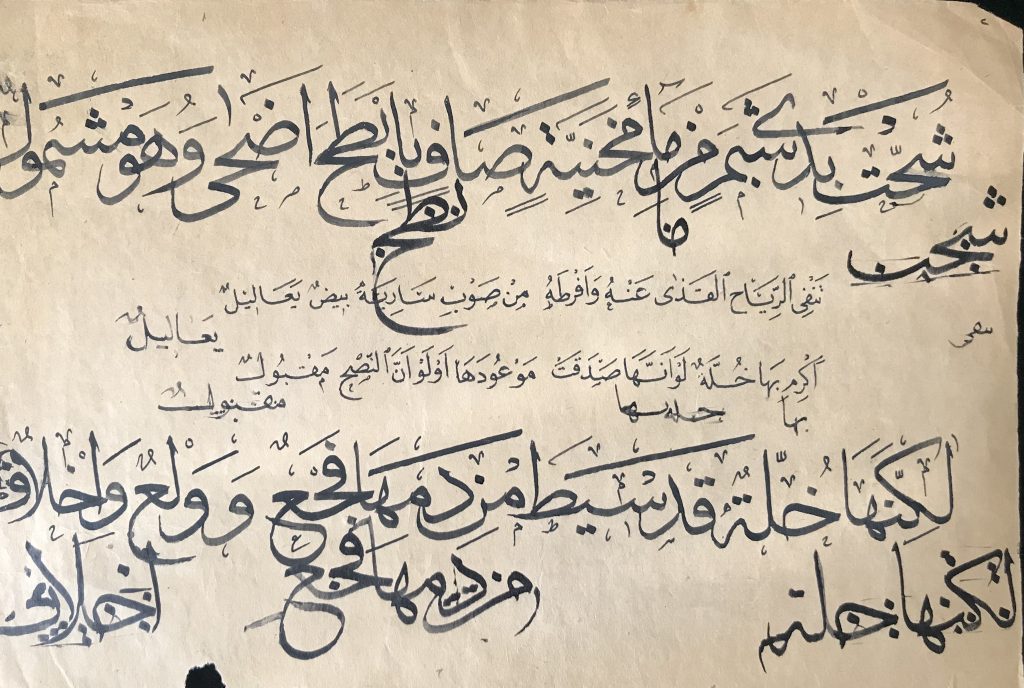 شُجَّتْ بِذِي شَبَمٍ مِنْ مَاءِ مَحْنِيَةٍ صَافٍ بِأَبْطَحَ اَضْحَى وَهُوَ مَشْمُولُ
شجت ما بطح
تَنْفِى ٱلرِّيَاحُ ٱلْقَذٰى عَنْهُ وَاَفْرَطَهُ مِنْ صَوْبِ سَارِيَةٍ بِيضٌ يَعَالِيلُ
تنفى يعاليلُ
اَكْرِمْ بِهَا خُلَّةً لَوْ اَنَّهَا صَدَقَتْ مَوْعُودَهَا اَوْ لَوْ اَنَّ ٱلنُّصْحَ مَقْبُولُ
بها خلة بها مقبول
لٰكِنَّهَا خُلَّةٌ قَدْ سِيطَ مِنْ دَمِهَا فَجْعٌ وَ وَلْعٌ وَاِخْلَافٌ
لكنها خلة من دمها فجع اخلاف